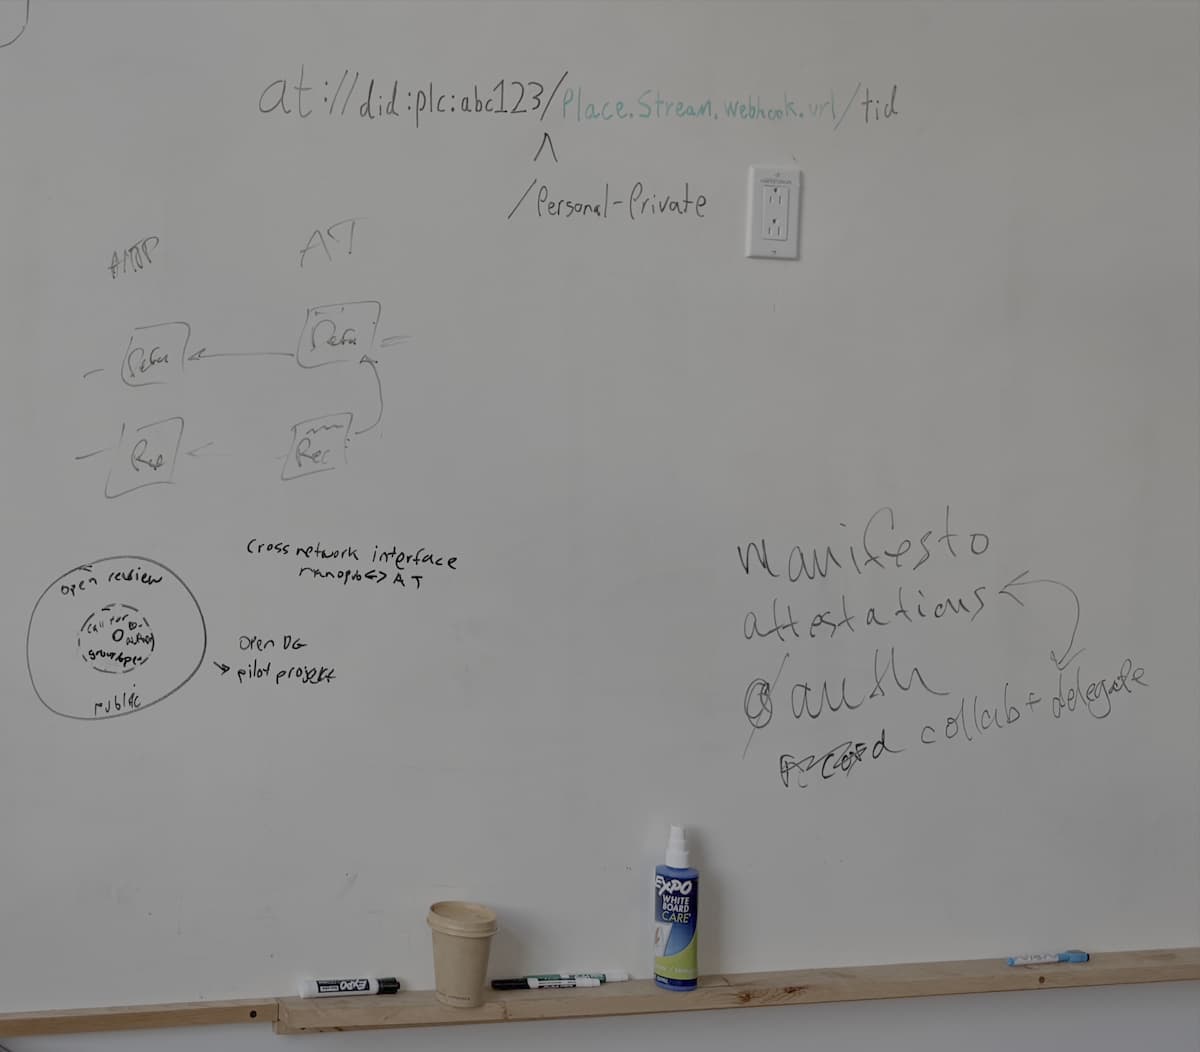 at://did:plc:abc123/Place.Stream.webhook.url/tid
^
/Personal-Private
AT
Rec
open review
call for
group open
public
cross network interface
nanopub<>AT
open DG
→ pilot projekt
manifesto
attestations
auth
collab + delegate
EXPO
WHITE
BOARD
CARE
EXPO